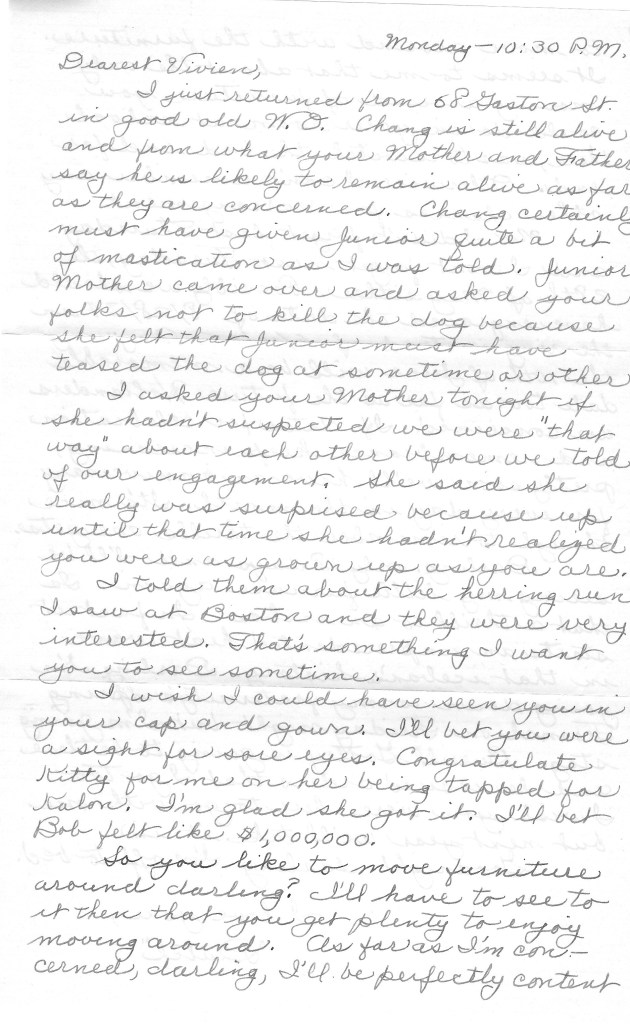 Monday – 10:30 P.M.
Dearest Vivien,
I just returned from 68 Gaston St.
in good old W.O. Chang is still alive
and from what your Mother and Father
say he is likely to remain alive as far
as they are concerned. Chang certainly
must have given Junior quite a bit
of mastication as I was told. Junior
Mother came over and asked your
folks not to kill the dog because
she felt that Junior must have
teased the dog at sometime or other
I asked your Mother tonight if
she hadn't suspected we were "that
way" about each other before we told
of our engagement. She said she
really was surprised because up
until that time she hadn't realized
you were as grown up as you are.
I told them about the herring run
I saw at Boston and they were very
interested. That's something I want
you to see sometime.
I wish I could have seen you in
your cap and gown. I'll bet you were
a sight for sore eyes. Congratulate
Kitty for me on her being tapped for
Kalon. I'm glad she got it. I'll bet
Bob felt like $1,000,000.
So you like to move furniture
around darling? I'll have to see to
it then that you get plenty to enjoy
moving around. As far as I'm con-
cerned, darling, I'll be perfectly content